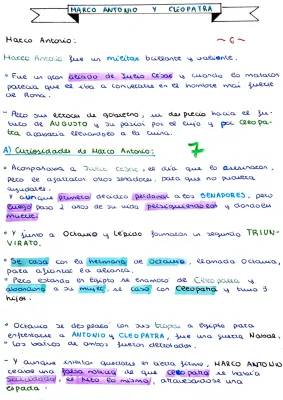 MARCO ANTONIO Y CLEOPATRA
Marco Antonio: ~ 6 ~
Marco Antonio fue un militar brillante y valiente.
* Fue un gran aliado de Julio Cesar y cuando lo mataron
parecía que él iba a convertirse en el hombre más fuerte
de Roma.
- Pero sus errores de gobierno, su desprecio hacia el futu-
ro de AUGUSTO y su pasión por el lujo y por Cleopa-
tra acabaría llevándolo a la ruina.
A) Curiosidades de Marco Antonio: 7
* Acompañaba a Julio Cesar, el día que lo asesinaron,
pero le apartaron otros senadores, para que no pudiera
ayudarle.
Y aunque primero decidió perdonar a los SENADORES, pero
luego pasó 2 años de su vida persiguiéndolos y dándoles
muerte.
* Y junto a Octavio y Lépido formaron el segundo TRIUN-
VIRATO.
* Se casó con la hermana de Octavio, llamada Octavia,
para afianzar la alianza.
* Pero estando en Egipto se enamoró de Cleopatra y
abandonó a su mujer, se casó con Cleopatra y tuvo 3
hijos.
* Octavio se desplazó con sus tropas a Egipto para
enfrentarse a ANTONIO y CLEOPATRA, fue una guerra Naval,
los barcos de ambos fueron derrotados.
- Y aunque intentó quedarse en tierra firme, MARCO ANTONIO
recibió una falsa noticia de que Cleopatra se había
suicidado, él hizo lo mismo, atravesándose una
espada.